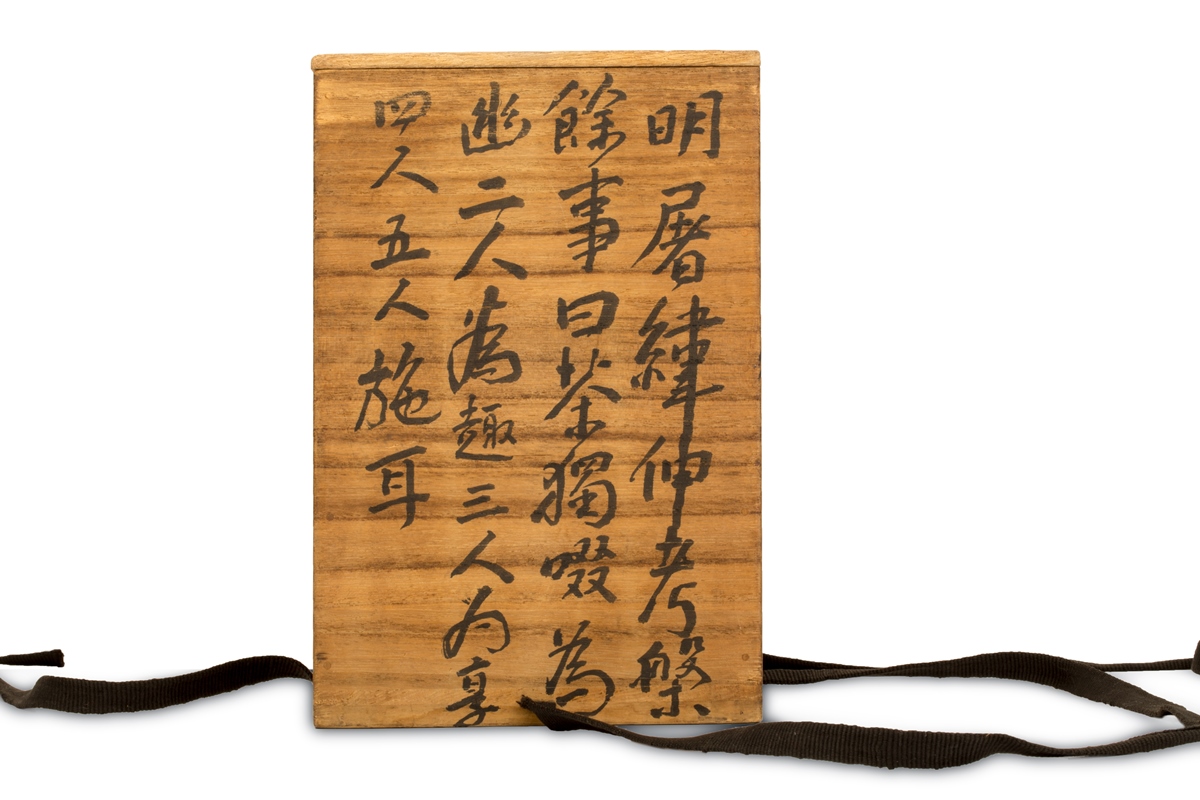 明屠緯伸考槃
餘事曰茶獨啜為
幽二人為趣三人為享
四人五人施耳